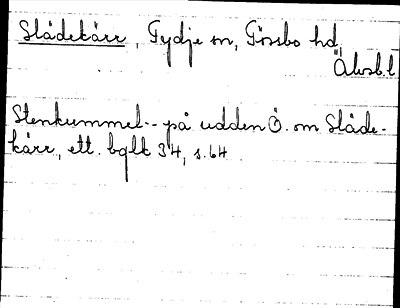 Slådekärr, Fydje sn, Försbo hd,
Älvsb. l
Stenkummel -- på udden Ö. om Slåde-
kärr, ett. bglt 34, s. 64